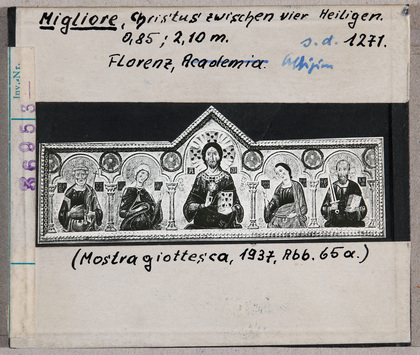 Migliore, Christus zwischen vier Heiligen.
0,85; 2,10 m. s. d. 1271.
Florenz, Academia. Uffizien
Inv.-Nr.
(Mostra giottesca, 1937, Abb. 65a.)